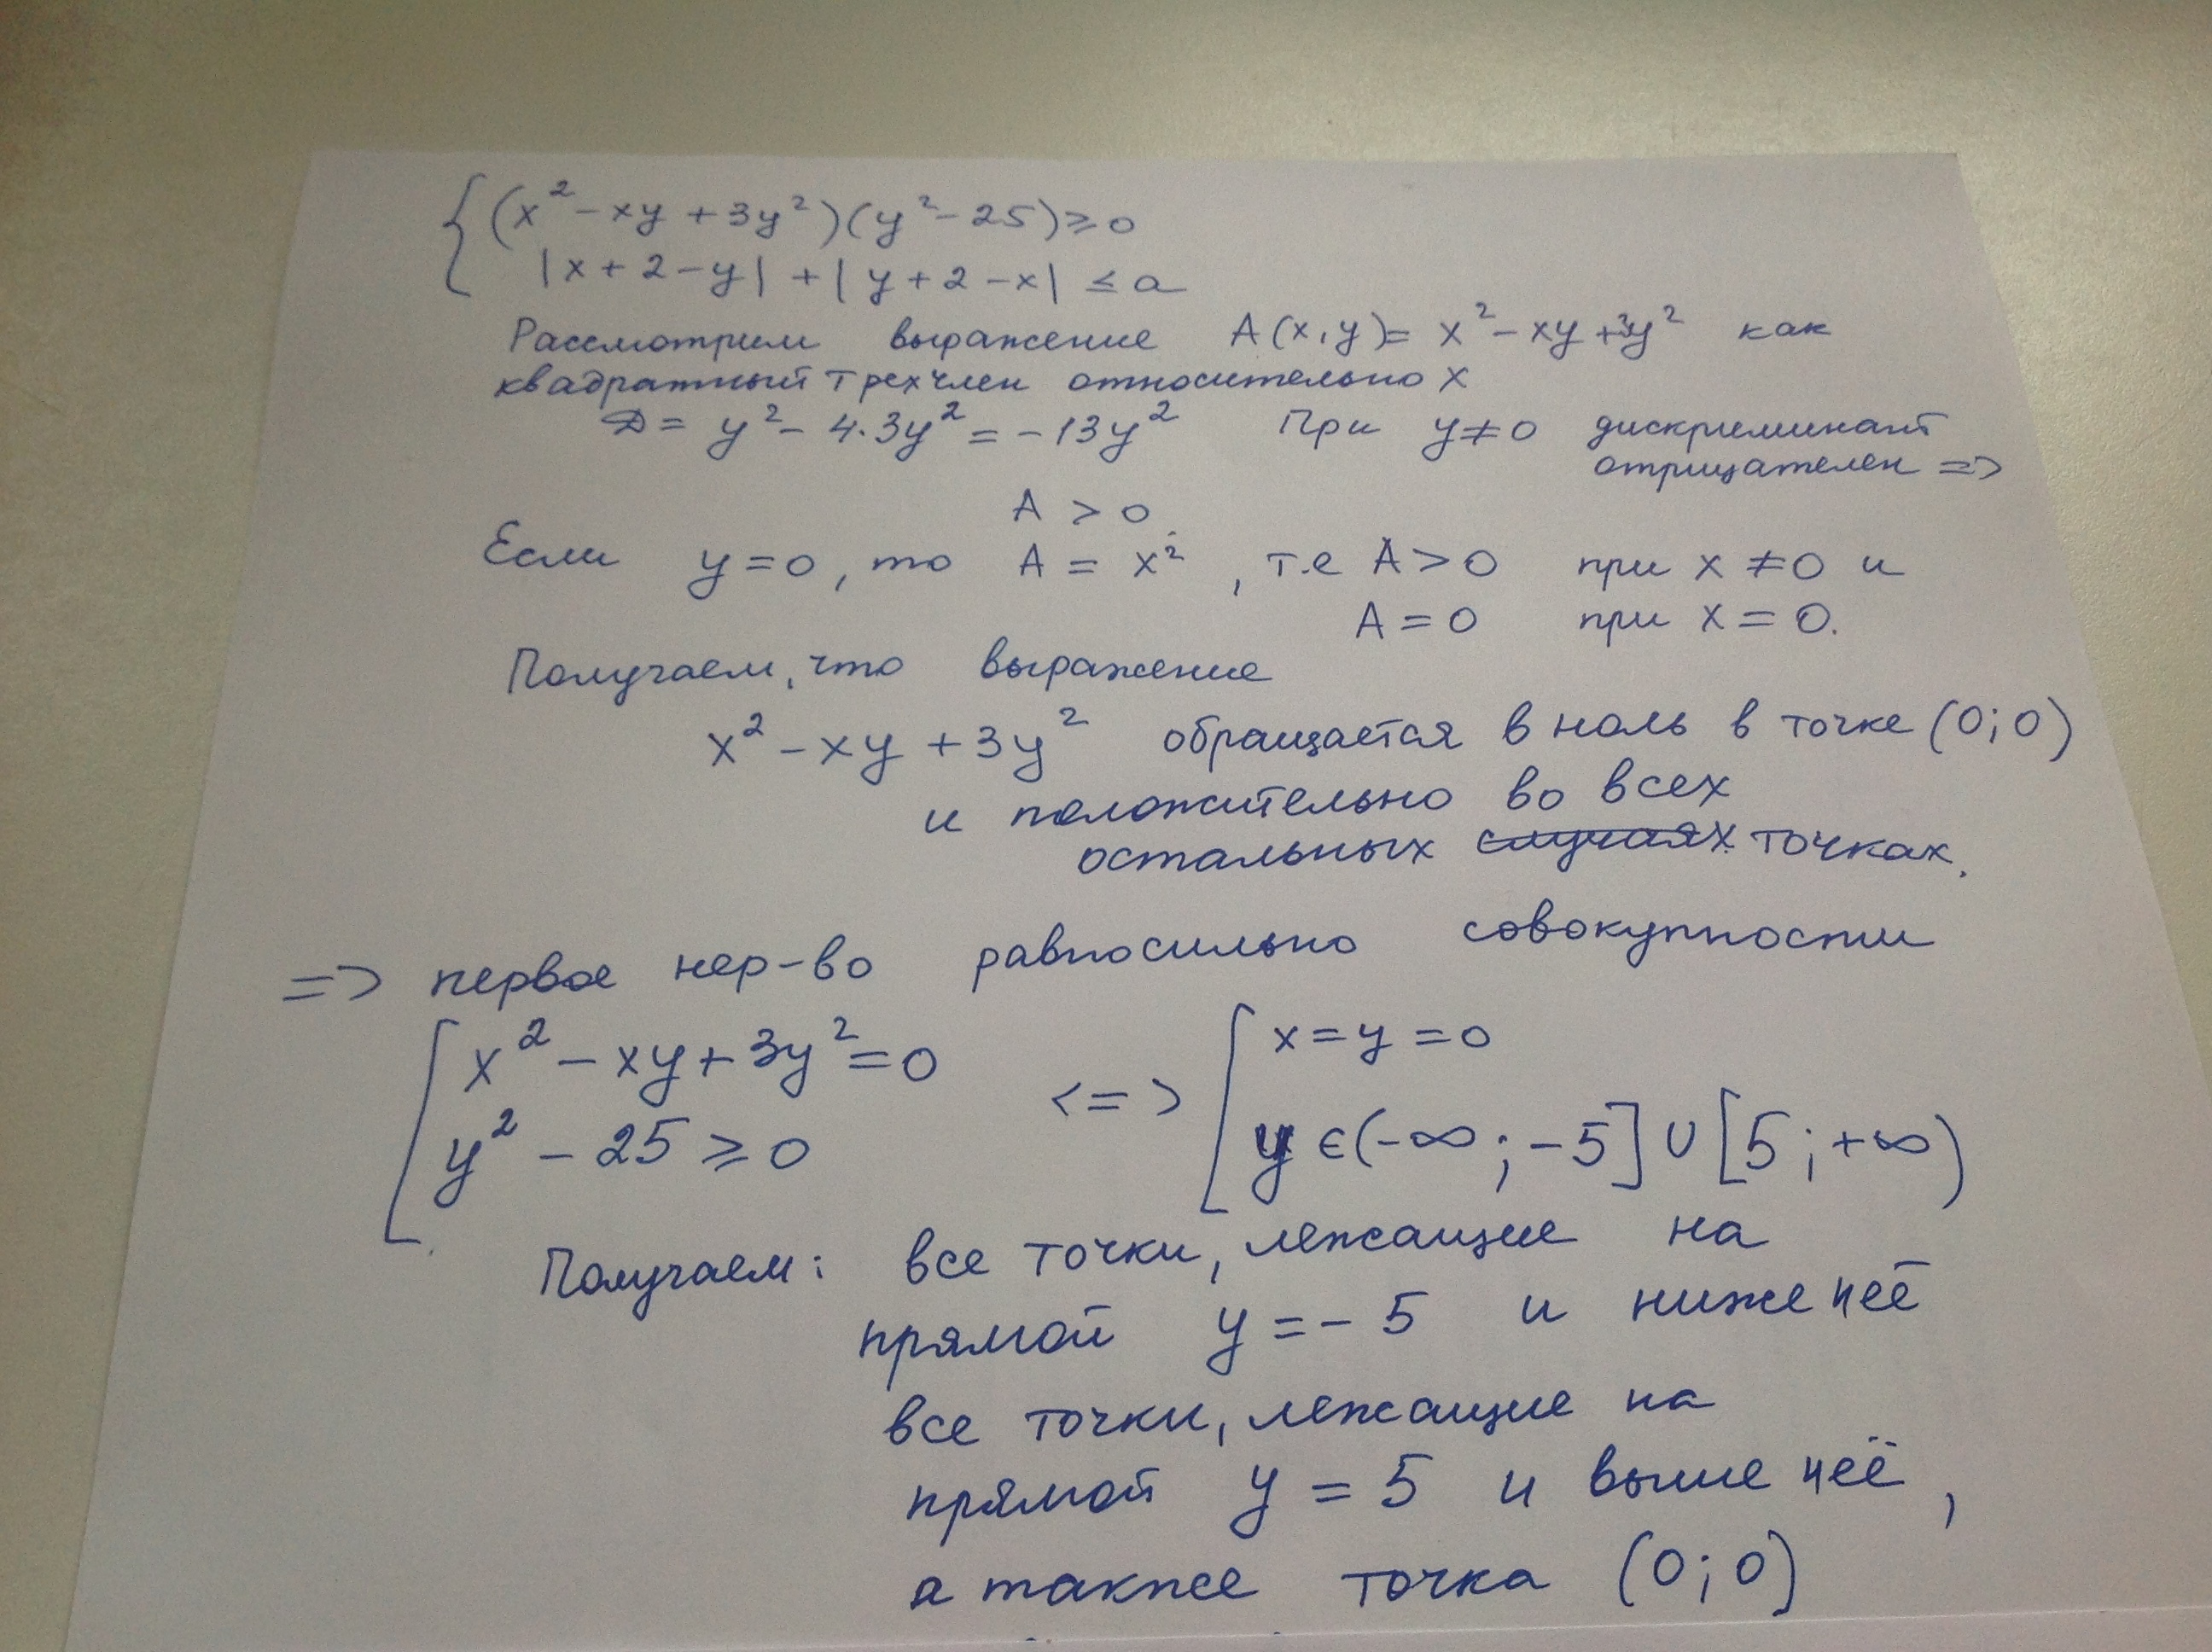 { (x² - xy + 3y²)(y² - 25) ≥ 0
|x + 2 - y| + |y + 2 - x| ≤ a
Рассмотрим выражение A(x,y) = x² - xy + 3y² как
квадратный трехчлен относительно x
D = y² - 4·3y² = -13y² При y ≠ 0 дискриминант
отрицателен =>
A > 0.
Если y = 0, то A = x², т.е A > 0 при x ≠ 0 и
A = 0 при x = 0.
Получаем, что выражение
x² - xy + 3y² обращается в ноль в точке (0;0)
и положительно во всех
остальных случаях точках.
=> первое нер-во равносильно совокупности
[ x² - xy + 3y² = 0 <=> [ x = y = 0
y² - 25 ≥ 0 y ∈ (-∞; -5] ∪ [5; +∞)
Получаем: все точки, лежащие на
прямой y = -5 и ниже неё
все точки, лежащие на
прямой y = 5 и выше неё,
а также точка (0;0)